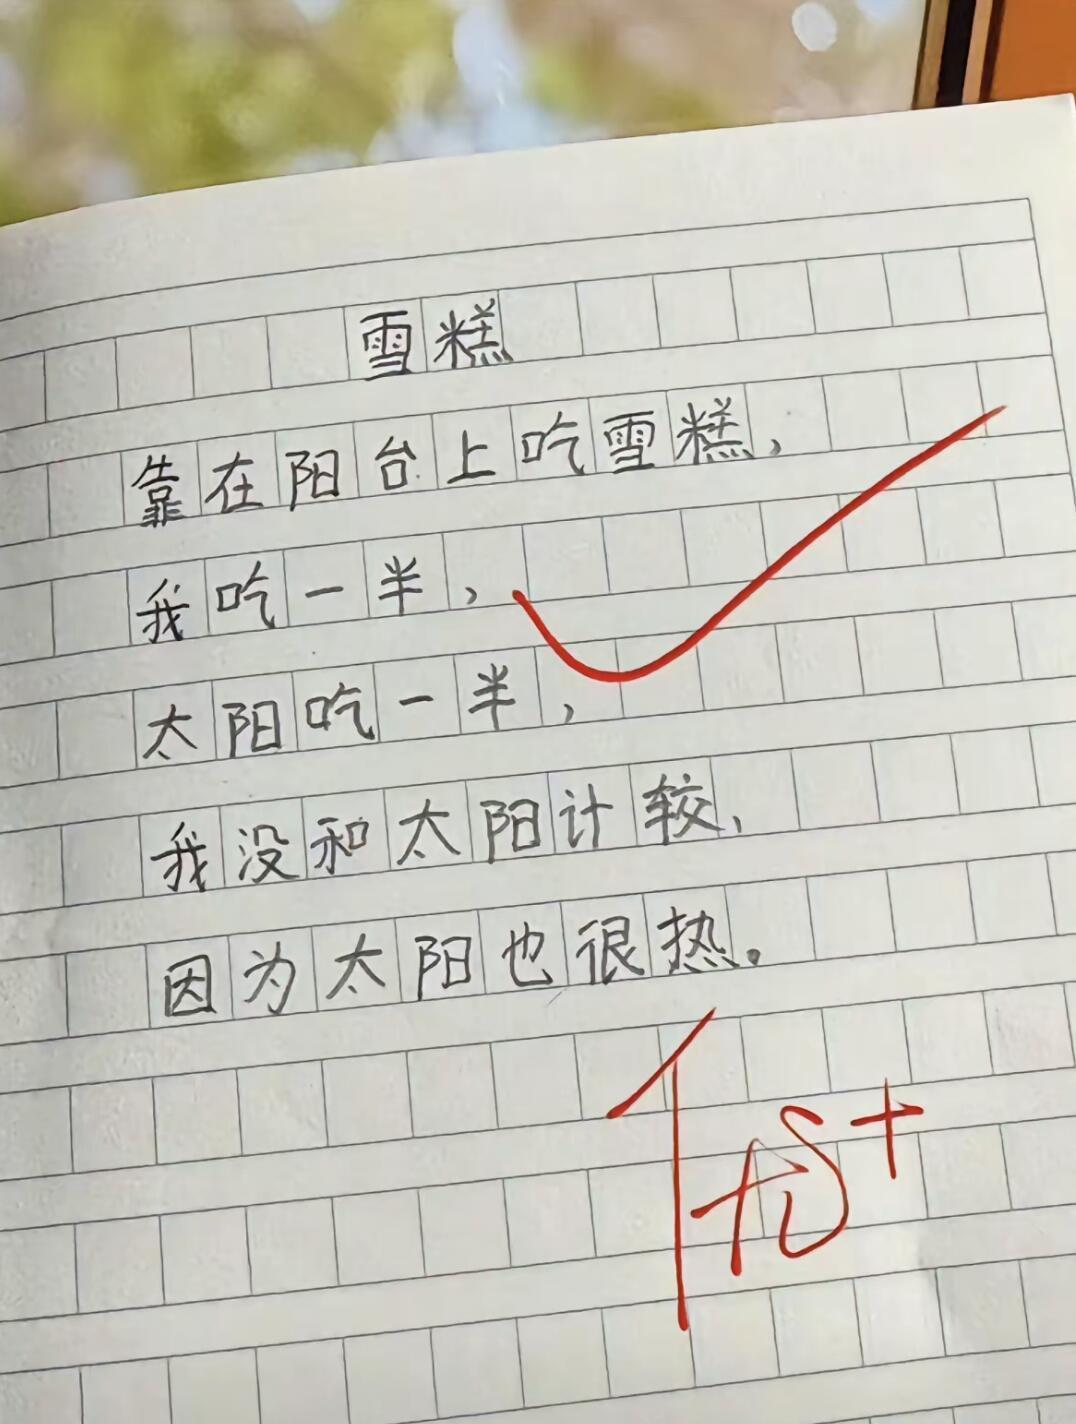 雪糕
靠在阳台上吃雪糕,
我吃一半,
太阳吃一半,
我没和太阳计较,
因为太阳也很热。
优+